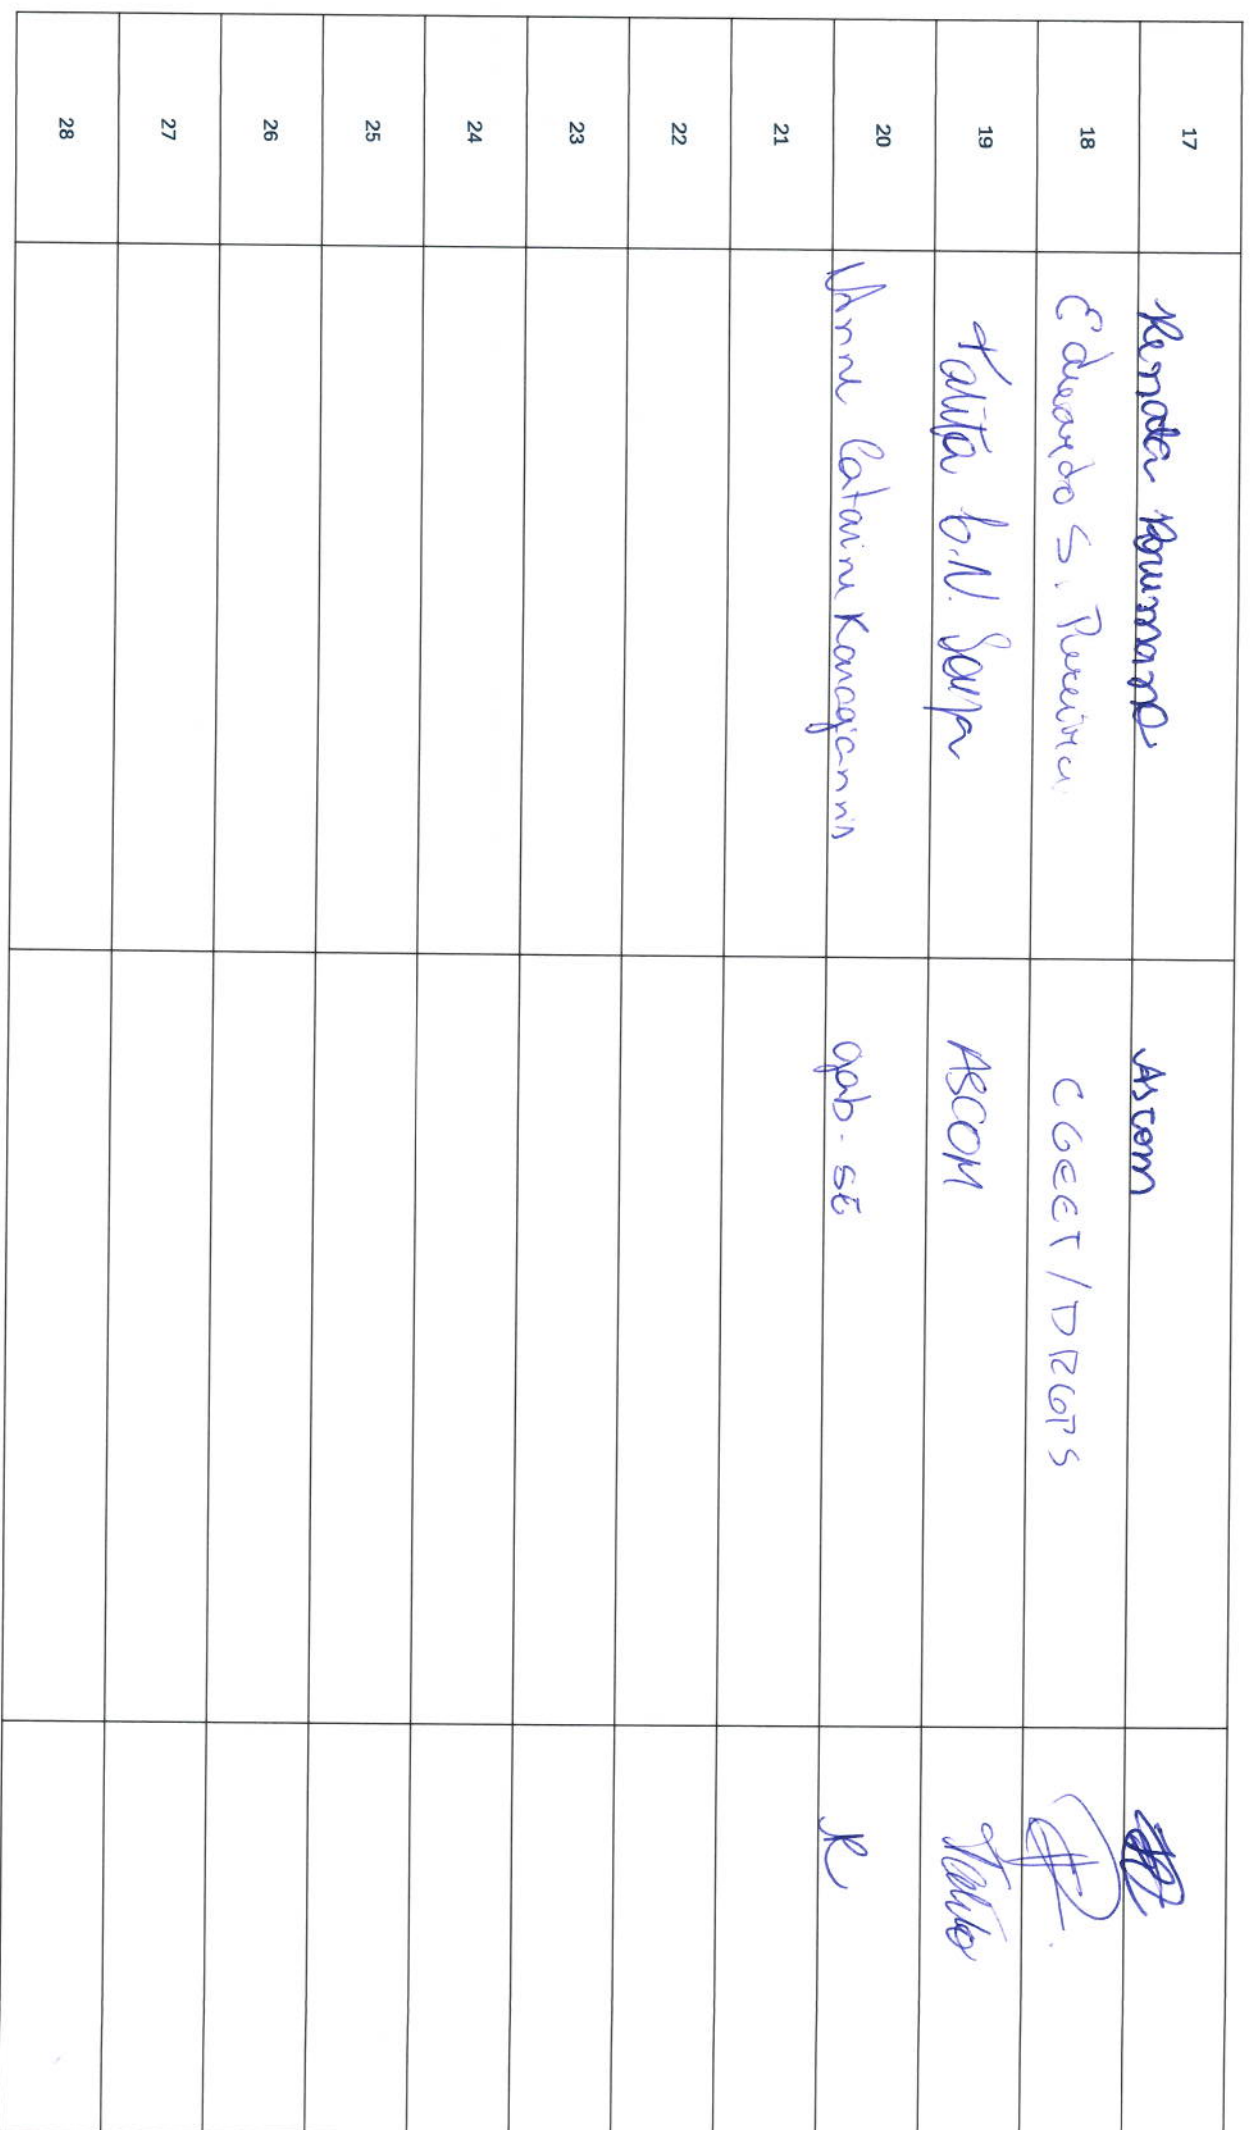 17 Renata Brumano Ascom
18 Eduardo S. Pereira CGEET/DRGPS
19 Talita ASCOM Talita
20 Anne Catarine gab-SE
21
22
23
24
25
26
27
28